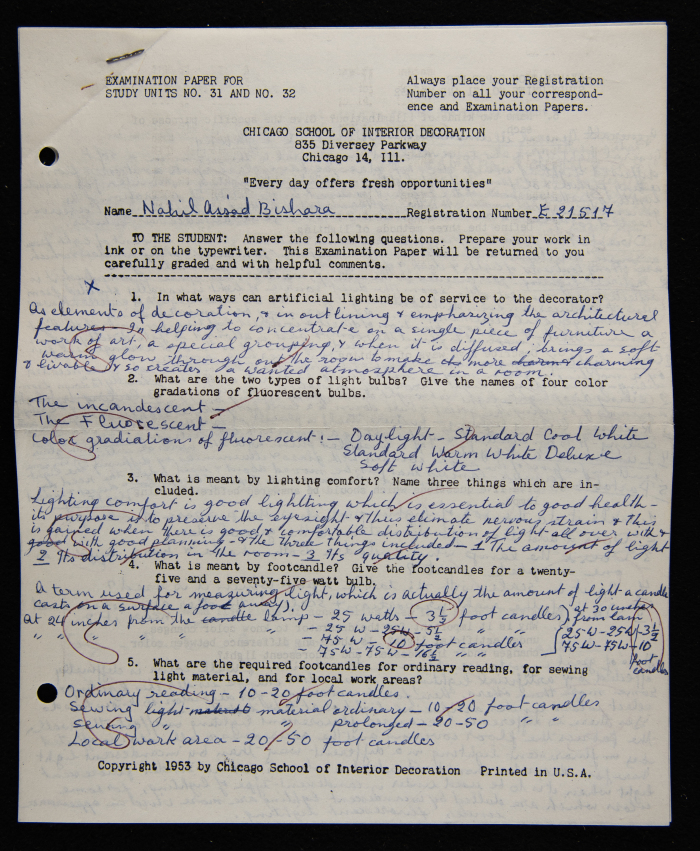 EXAMINATION PAPER FOR
STUDY UNITS NO. 31 AND NO. 32
Always place your Registration
Number on all your correspond-
ence and Examination Papers.
CHICAGO SCHOOL OF INTERIOR DECORATION
835 Diversey Parkway
Chicago 14, Ill.
"Every day offers fresh opportunities"
Name Nahil Assad Bishara Registration Number E 21517
TO THE STUDENT: Answer the following questions. Prepare your work in
ink or on the typewriter. This Examination Paper will be returned to you
carefully graded and with helpful comments.
X
1. In what ways can artificial lighting be of service to the decorator?
As elements of decoration, & in outlining & emphasizing the architectural
features. In helping to concentrate on a single piece of furniture a
work of art, a special grouping, & when it is diffused brings a soft
warm glow through out the room to make it more charming
& livable & so creates a wanted atmosphere in a room.
2. What are the two types of light bulbs? Give the names of four color
gradations of fluorescent bulbs.
The incandescent -
The Fluorescent -
Color gradiations of fluorescent:- Daylight - Standard Cool White
Standard Warm White Deluxe
Soft White
3. What is meant by lighting comfort? Name three things which are in-
cluded.
Lighting comfort is good lighting which is essential to good health -
its purpose is to preserve the eyesight & thus elimate nervous strain & this
is gained when there is good & comfortable distribution of light all over with &
good with good planning & the three things included - 1 The amount of light
2 Its distribution in the room - 3 Its quality.
4. What is meant by footcandle? Give the footcandles for a twenty-
five and a seventy-five watt bulb.
A term used for measuring light, which is actually the amount of light a candle
casts on a surface a foot away).
At 24 inches from the candle lamp - 25 watts - 3½ foot candles
" " " " " - 25 W - 25W - 5½ " "
- 75 W - 10 foot candles
- 75W - 75W - 16½ " "
at 30 inches
from lam
25W - 25W - 3½
75W - 75W - 10
foot
candles
5. What are the required footcandles for ordinary reading, for sewing
light material, and for local work areas?
Ordinary reading - 10-20 foot candles.
Sewing light material ordinary - 10-20 foot candles
Sewing " " prolonged - 20-50 " "
Local work area - 20-50 foot candles
Copyright 1953 by Chicago School of Interior Decoration Printed in U.S.A.